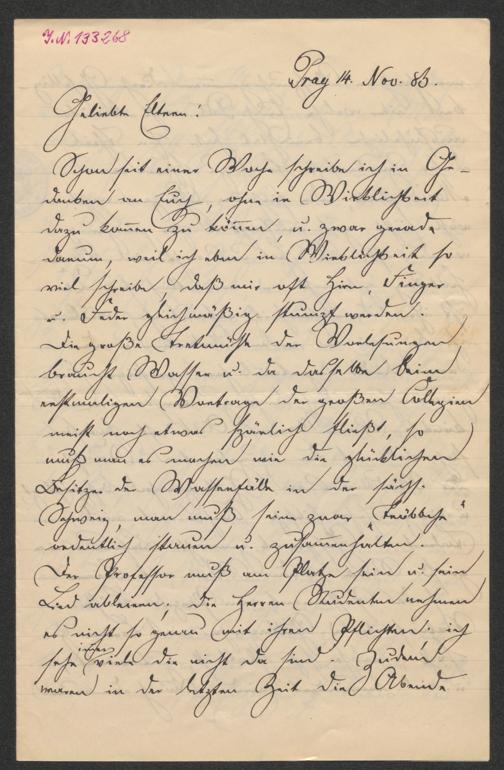 J.N. 133268
Prag 14. Nov. 85.
Geliebte Eltern!
Schon seit einer Woche schreibe ich in Ge-
danken an Euch, ohne in Wirklichkeit
dazu kommen zu können, u. zwar gerade
darum, weil ich eben in Wirklichkeit so
viel schreibe, daß mir oft Hirn, Finger
u. Feder gleichmäßig stumpf werden.
Die große Tretmühle der Vorlesungen
braucht Wasser u. da dasselbe beim
erstmaligen Vortrage der großen Collegien
meist noch etwas spärlich fließt, so
muß man es machen wie die glücklichen
Besitzer der Wasserfälle in der sächs.
Schweiz, man muß seine paar "Tröbbche"
ordentlich stauen u. zusammenhalten.
Der Professor muß am Platze sein u. sein
Lied ableiern; die Herren Studenten nehmen
es nicht so genau mit ihren Pflichten: ich
sehe immer viele die nicht da sind. Zudem
waren in der letzten Zeit die Abende